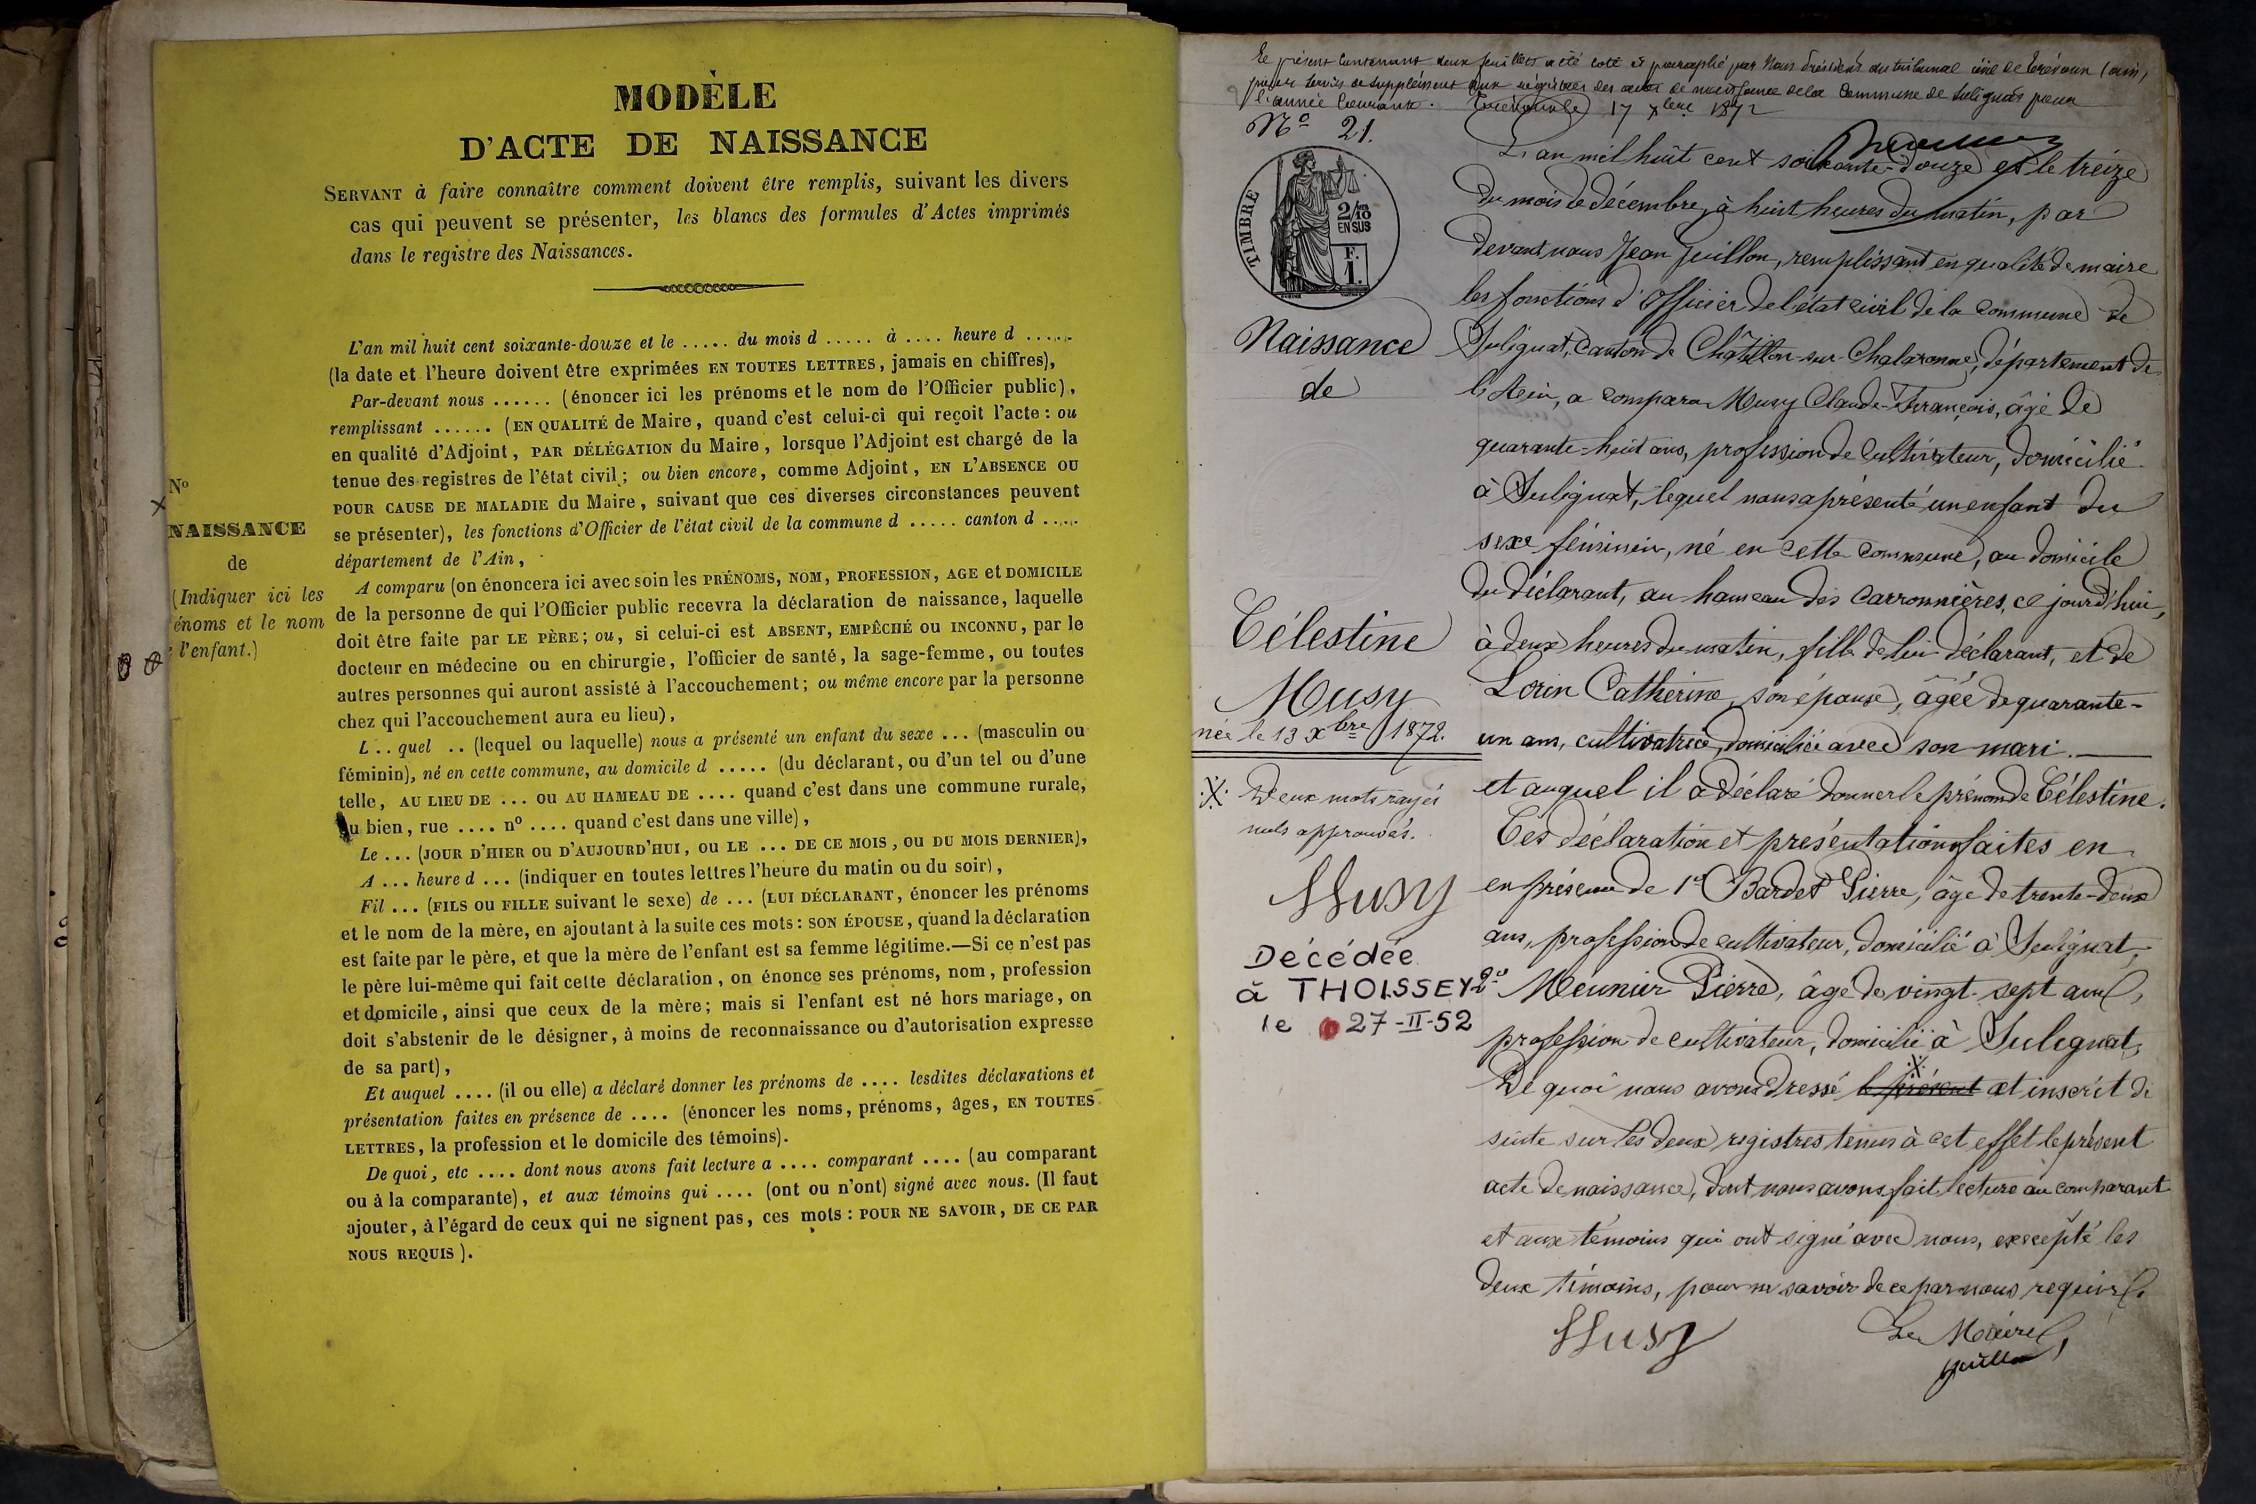 MODÈLE
D'ACTE DE NAISSANCE
SERVANT à faire connaître comment doivent être remplis, suivant les divers
cas qui peuvent se présenter, les blancs des formules d'Actes imprimés
dans le registre des Naissances.
L'an mil huit cent soixante-douze et le ..... du mois d ..... à .... heure d ......
(la date et l'heure doivent être exprimées EN TOUTES LETTRES, jamais en chiffres),
Par-devant nous ...... (énoncer ici les prénoms et le nom de l'Officier public),
remplissant ...... (EN QUALITÉ de Maire, quand c'est celui-ci qui reçoit l'acte : ou
en qualité d'Adjoint, PAR DÉLÉGATION du Maire, lorsque l'Adjoint est chargé de la
tenue des registres de l'état civil ; ou bien encore, comme Adjoint, EN L'ABSENCE OU
POUR CAUSE DE MALADIE du Maire, suivant que ces diverses circonstances peuvent
se présenter), les fonctions d'Officier de l'état civil de la commune d ..... canton d .....
département de l'Ain,
A comparu (on énoncera ici avec soin les PRÉNOMS, NOM, PROFESSION, AGE et DOMICILE
de la personne de qui l'Officier public recevra la déclaration de naissance, laquelle
doit être faite par LE PÈRE ; ou, si celui-ci est ABSENT, EMPÊCHÉ ou INCONNU, par le
docteur en médecine ou en chirurgie, l'officier de santé, la sage-femme, ou toutes
autres personnes qui auront assisté à l'accouchement ; ou même encore par la personne
chez qui l'accouchement aura eu lieu),
L .. quel .. (lequel ou laquelle) nous a présenté un enfant du sexe ... (masculin ou
féminin), né en cette commune, au domicile d ..... (du déclarant, ou d'un tel ou d'une
telle, AU LIEU DE ... ou AU HAMEAU DE .... quand c'est dans une commune rurale,
ou bien, rue .... no .... quand c'est dans une ville),
Le ... (JOUR D'HIER ou D'AUJOURD'HUI, ou LE ... DE CE MOIS, ou DU MOIS DERNIER),
A ... heure d ... (indiquer en toutes lettres l'heure du matin ou du soir),
Fil ... (FILS ou FILLE suivant le sexe) de ... (LUI DÉCLARANT, énoncer les prénoms
et le nom de la mère, en ajoutant à la suite ces mots : SON ÉPOUSE, quand la déclaration
est faite par le père, et que la mère de l'enfant est sa femme légitime.—Si ce n'est pas
le père lui-même qui fait cette déclaration, on énonce ses prénoms, nom, profession
et domicile, ainsi que ceux de la mère ; mais si l'enfant est né hors mariage, on
doit s'abstenir de le désigner, à moins de reconnaissance ou d'autorisation expresse
de sa part),
Et auquel .... (il ou elle) a déclaré donner les prénoms de .... lesdites déclarations et
présentation faites en présence de .... (énoncer les noms, prénoms, âges, EN TOUTES
LETTRES, la profession et le domicile des témoins).
De quoi, etc .... dont nous avons fait lecture a .... comparant .... (au comparant
ou à la comparante), et aux témoins qui .... (ont ou n'ont) signé avec nous. (Il faut
ajouter, à l'égard de ceux qui ne signent pas, ces mots : POUR NE SAVOIR, DE CE PAR
NOUS REQUIS).
No
NAISSANCE
de
(Indiquer ici les
énoms et le nom
l'enfant.)
Le présent contenant deux feuillets a été coté et paraphé par Nous Président du tribunal civil de Trévoux (ain)
pour servir de supplément aux registres des actes de naissance de la Commune de Sulignat pour
l'année courante. Trévoux le 17 xbre 1872
No 21.
TIMBRE
2/10
EN SUS
F.
1.
Naissance
de
Célestine
Musy
née le 13 Xbre 1872.
Deux mots rayés
nuls approuvés.
Musy
Décédée
à THOISSEY
le 27-II-52
L'an mil huit cent soixante-douze et le treize
du mois de décembre, à huit heures du matin, par
devant nous Jean Guillon, remplissant en qualité de maire
les fonctions d'Officier de l'état civil de la commune de
Sulignat, canton de Châtillon-sur-Chalaronne, département de
l'Ain, a comparu Musy Claude-François, âgé de
quarante-huit ans, profession de cultivateur, domicilié
à Sulignat, lequel nous a présenté un enfant du
sexe féminin, né en cette commune, au domicile
du déclarant, au hameau des Carronnières, ce jourd'hui,
à deux heures du matin, fille de lui déclarant, et de
Lorin Catherine, son épouse, âgée de quarante-
un ans, cultivatrice, domiciliée avec son mari.
et auquel il a déclaré donner le prénom de Célestine.
Ces déclaration et présentation faites en
en présence de 1er Bardet Pierre, âge de trente-deux
ans, profession de cultivateur, domicilié à Sulignat,
2e Meunier Pierre, âge de vingt-sept ans,
profession de cultivateur, domicilié à Sulignat,
De quoi nous avons dressé le présent et inscrit de
suite sur les deux registres tenus à cet effet le présent
acte de naissance, dont nous avons fait lecture au comparant
et aux témoins qui ont signé avec nous, excepté les
deux témoins, pour ne savoir de ce par nous requis.
Musy
Le Maire,
Guillon